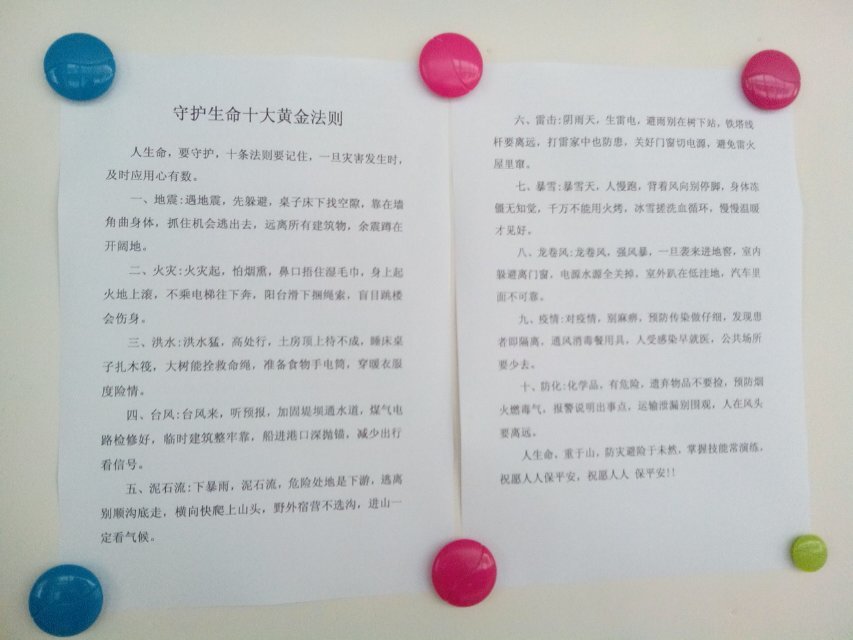 守护生命十大黄金法则
人生命，要守护，十条法则要记住，一旦灾害发生时，
及时应用心有数。
一、地震:遇地震，先躲避，桌子床下找空隙，靠在墙
角曲身体，抓住机会逃出去，远离所有建筑物，余震蹲在
开阔地。
二、火灾:火灾起，怕烟熏，鼻口捂住湿毛巾，身上起
火地上滚，不乘电梯往下奔，阳台滑下捆绳索，盲目跳楼
会伤身。
三、洪水:洪水猛，高处行，土房顶上待不成，睡床桌
子扎木筏，大树能拴救命绳，准备食物手电筒，穿暖衣服
度险情。
四、台风:台风来，听预报，加固堤坝通水道，煤气电
路检修好，临时建筑整牢靠，船进港口深抛锚，减少出行
看信号。
五、泥石流:下暴雨，泥石流，危险处地是下游，逃离
别顺沟底走，横向快爬上山头，野外宿营不选沟，进山一
定看气候。
六、雷击:阴雨天，生雷电，避雨别在树下站，铁塔线
杆要离远，打雷家中也防患，关好门窗切电源，避免雷火
屋里窜。
七、暴雪:暴雪天，人慢跑，背着风向别停脚，身体冻
僵无知觉，千万不能用火烤，冰雪搓洗血循环，慢慢温暖
才见好。
八、龙卷风:龙卷风，强风暴，一旦袭来进地窖，室内
躲避离门窗，电源水源全关掉，室外趴在低洼地，汽车里
面不可靠。
九、疫情:对疫情，别麻痹，预防传染做仔细，发现患
者即隔离，通风消毒餐用具，人受感染早就医，公共场所
要少去。
十、防化:化学品，有危险，遗弃物品不要捡，预防烟
火燃毒气，报警说明出事点，运输泄漏别围观，人在风头
要离远。
人生命，重于山，防灾避险于未然，掌握技能常演练，
祝愿人人保平安，祝愿人人 保平安!!